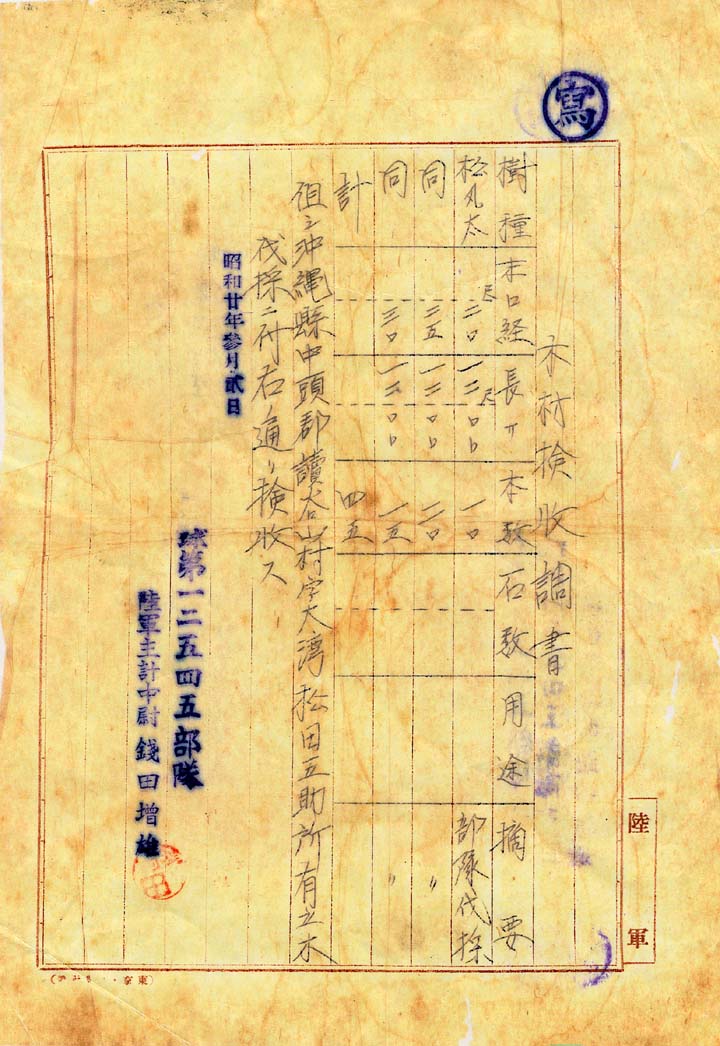 寫
木材検收調書
樹種 末口経 長サ 本数 石数 用途 摘要
松丸太 尺 二〇 尺 一二〇〇 一〇 部隊伐採
同 二五 一二〇〇 二〇 〃
同 三〇 一二〇〇 一五 〃
計 四五
但シ沖縄縣中頭郡讀谷山村字大湾松田五助所有立木
伐採ニ付右ノ通リ検收ス
昭和廿年參月貳日
球第一二五四五部隊
陸軍主計中尉 錢田增雄
陸軍